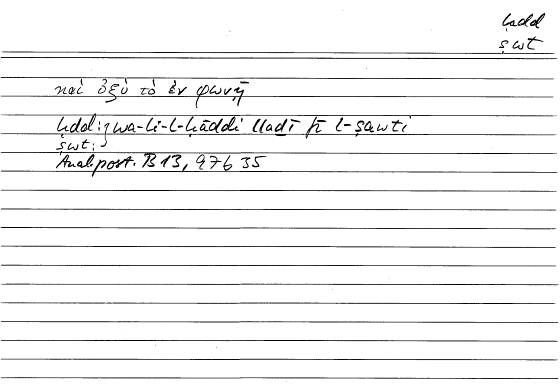 ḥadd
ṣwt
καὶ ὀξὺ τὸ ἐν φωνῇ
ḥdd: } wa-li-l-ḥāddi lladī fī l-ṣawti
ṣwt:
Anal. post. B 13, 97b 35